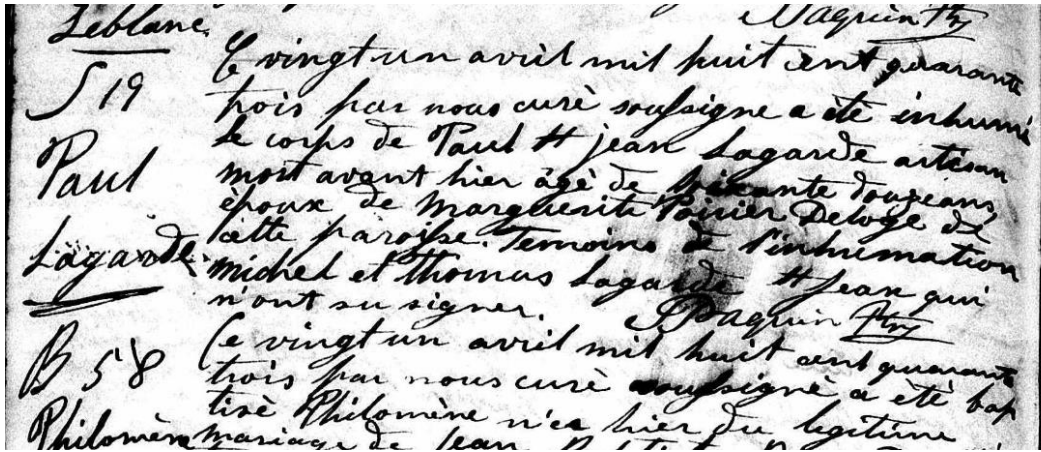 Leblanc
Paquin Ptre
S 19
Paul
Lagarde
Ce vingt un avril mil huit cent quarante
trois par nous curé soussigné a été inhumé
le corps de Paul St jean Lagarde artisan
mort avant hier âgé de soixante douze ans
époux de Marguerite Poirier Deloge de
cette paroisse. Temoins de l'inhumation
michel et thomas Lagarde St Jean qui
n'ont su signer. Paquin Ptre
B 58
Philomène
Ce vingt un avril mil huit cent quarante
trois par nous curé soussigné a été bap
tisé Philomène née hier du legitime
mariage de Jean